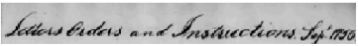 Letters Orders and Instructions. Sepr. 1756